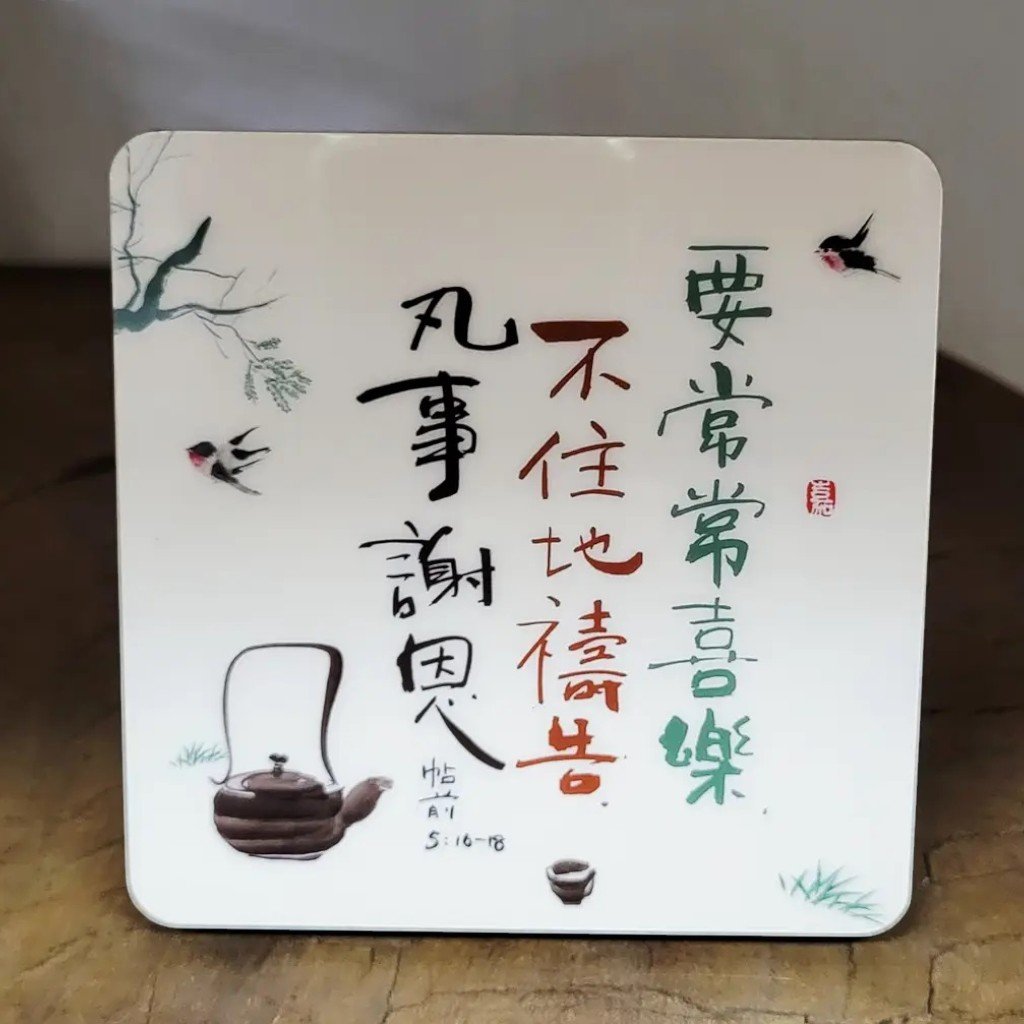 要常常喜樂.
不住地禱告.
凡事謝恩
帖前
5:16-18